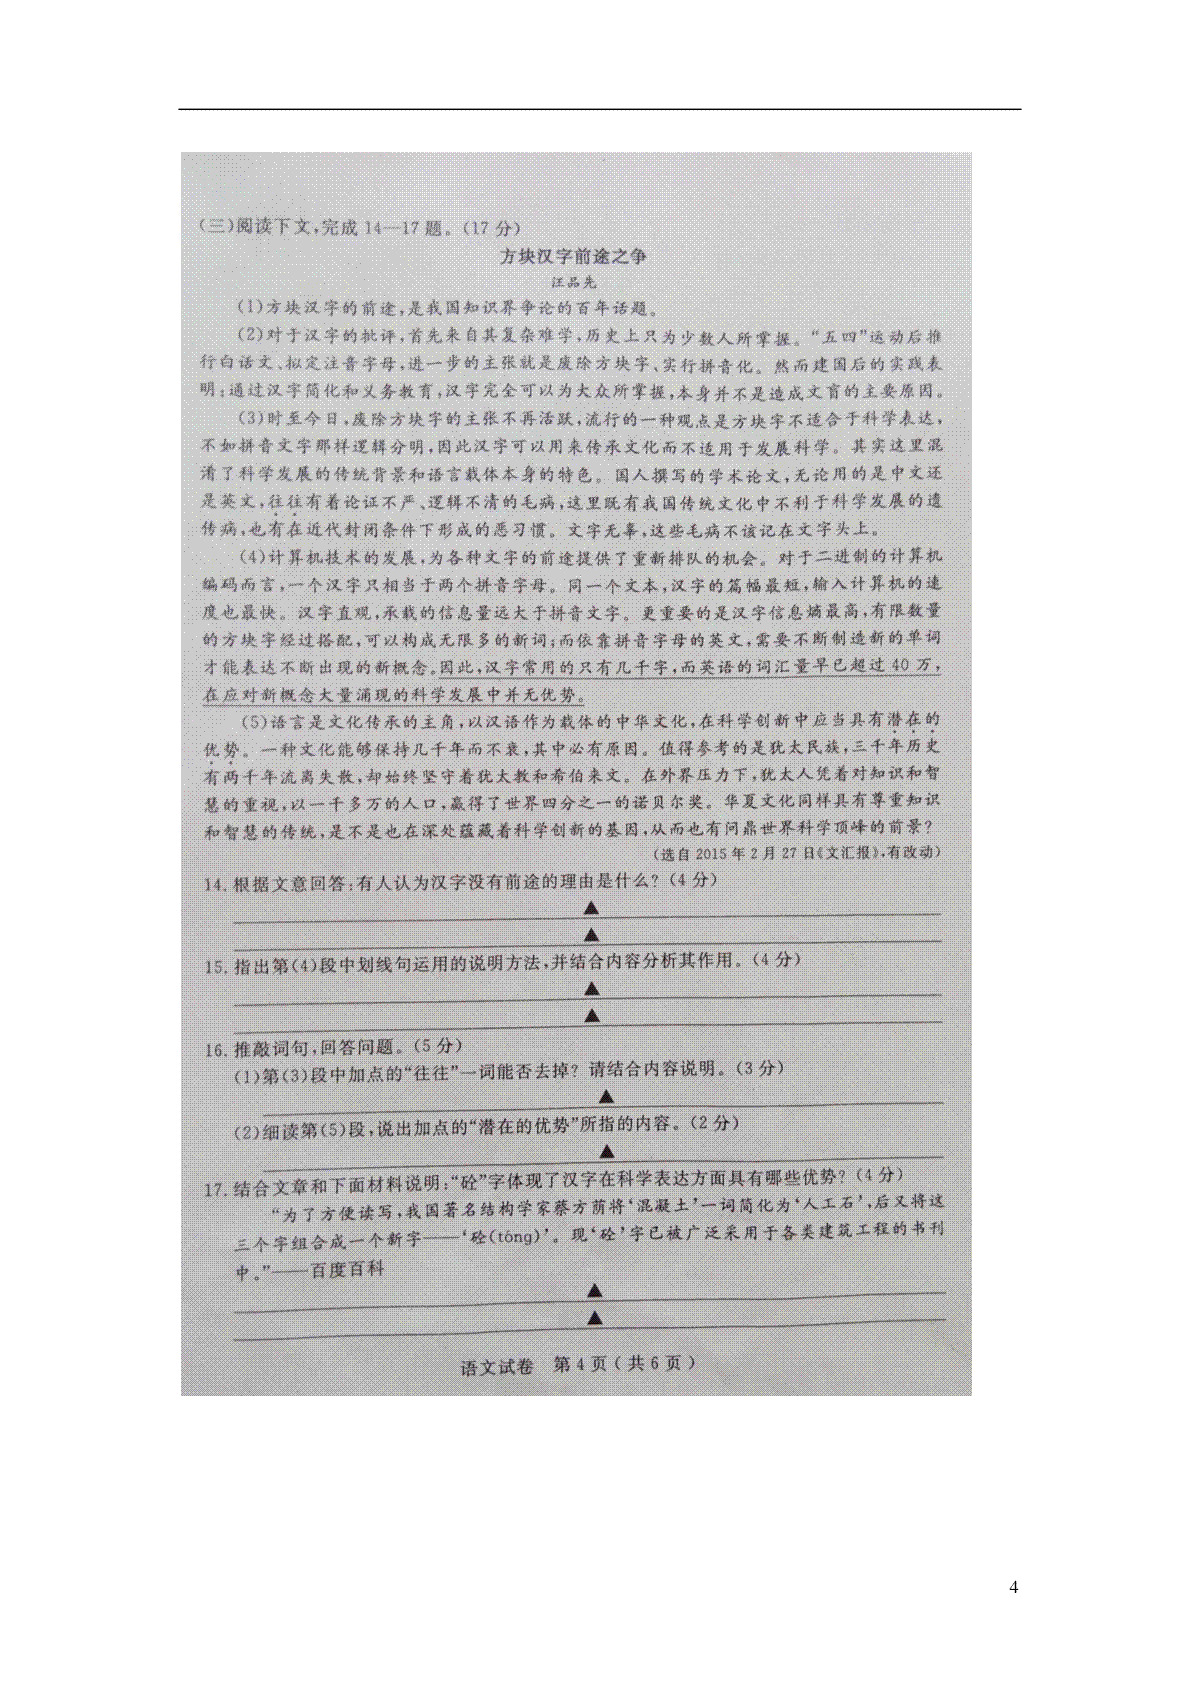 (三)阅读下文,完成14—17题。(17分)
方块汉字前途之争
汪品先
(1)方块汉字的前途,是我国知识界争论的百年话题。
(2)对于汉字的批评,首先来自其复杂难学,历史上只为少数人所掌握。“五四”运动后推
行白话文、拟定注音字母,进一步的主张就是废除方块字、实行拼音化。然而建国后的实践表
明:通过汉字简化和义务教育,汉字完全可以为大众所掌握,本身并不是造成文盲的主要原因。
(3)时至今日,废除方块字的主张不再活跃,流行的一种观点是方块字不适合于科学表达,
不如拼音文字那样逻辑分明,因此汉字可以用来传承文化而不适用于发展科学。其实这里混
淆了科学发展的传统背景和语言载体本身的特色。国人撰写的学术论文,无论用的是中文还
是英文,往往有着论证不严、逻辑不清的毛病,这里既有我国传统文化中不利于科学发展的遗
传病,也有在近代封闭条件下形成的恶习惯。文字无辜,这些毛病不该记在文字头上。
(4)计算机技术的发展,为各种文字的前途提供了重新排队的机会。对于二进制的计算机
编码而言,一个汉字只相当于两个拼音字母。同一个文本,汉字的篇幅最短,输入计算机的速
度也最快。汉字直观,承载的信息量远大于拼音文字。更重要的是汉字信息熵最高,有限数量
的方块字经过搭配,可以构成无限多的新词;而依靠拼音字母的英文,需要不断制造新的单词
才能表达不断出现的新概念。因此,汉字常用的只有几千字,而英语的词汇量早已超过40万,
在应对新概念大量涌现的科学发展中并无优势。
(5)语言是文化传承的主角,以汉语作为载体的中华文化,在科学创新中应当具有潜在的
优势。一种文化能够保持几千年而不衰,其中必有原因。值得参考的是犹太民族,三千年历史
有两千年流离失散,却始终坚守着犹太教和希伯来文。在外界压力下,犹太人凭着对知识和智
慧的重视,以一千多万的人口,赢得了世界四分之一的诺贝尔奖。华夏文化同样具有尊重知识
和智慧的传统,是不是也在深处蕴藏着科学创新的基因,从而也有问鼎世界科学顶峰的前景?
(选自2015年2月27日《文汇报》,有改动)
14.根据文意回答:有人认为汉字没有前途的理由是什么?(4分)
▲
▲
15.指出第(4)段中划线句运用的说明方法,并结合内容分析其作用。(4分)
▲
▲
16.推敲词句,回答问题。(5分)
(1)第(3)段中加点的“往往”一词能否去掉?请结合内容说明。(3分)
▲
(2)细读第(5)段,说出加点的“潜在的优势”所指的内容。(2分)
▲
17.结合文章和下面材料说明:“砼”字体现了汉字在科学表达方面具有哪些优势?(4分)
“为了方便读写,我国著名结构学家蔡方荫将‘混凝土’一词简化为‘人工石’,后又将这
三个字组合成一个新字——‘砼(tóng)’。现‘砼’字已被广泛采用于各类建筑工程的书刊
中。”——百度百科
▲
▲
语文试卷 第4页(共6页)
4